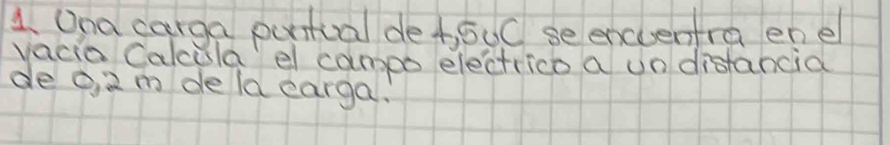 1. Una carga puntual de +,5uC se encuentra en el
vacio Calcula el campo eléctrico a un distancia
de 0,2 m de la carga.